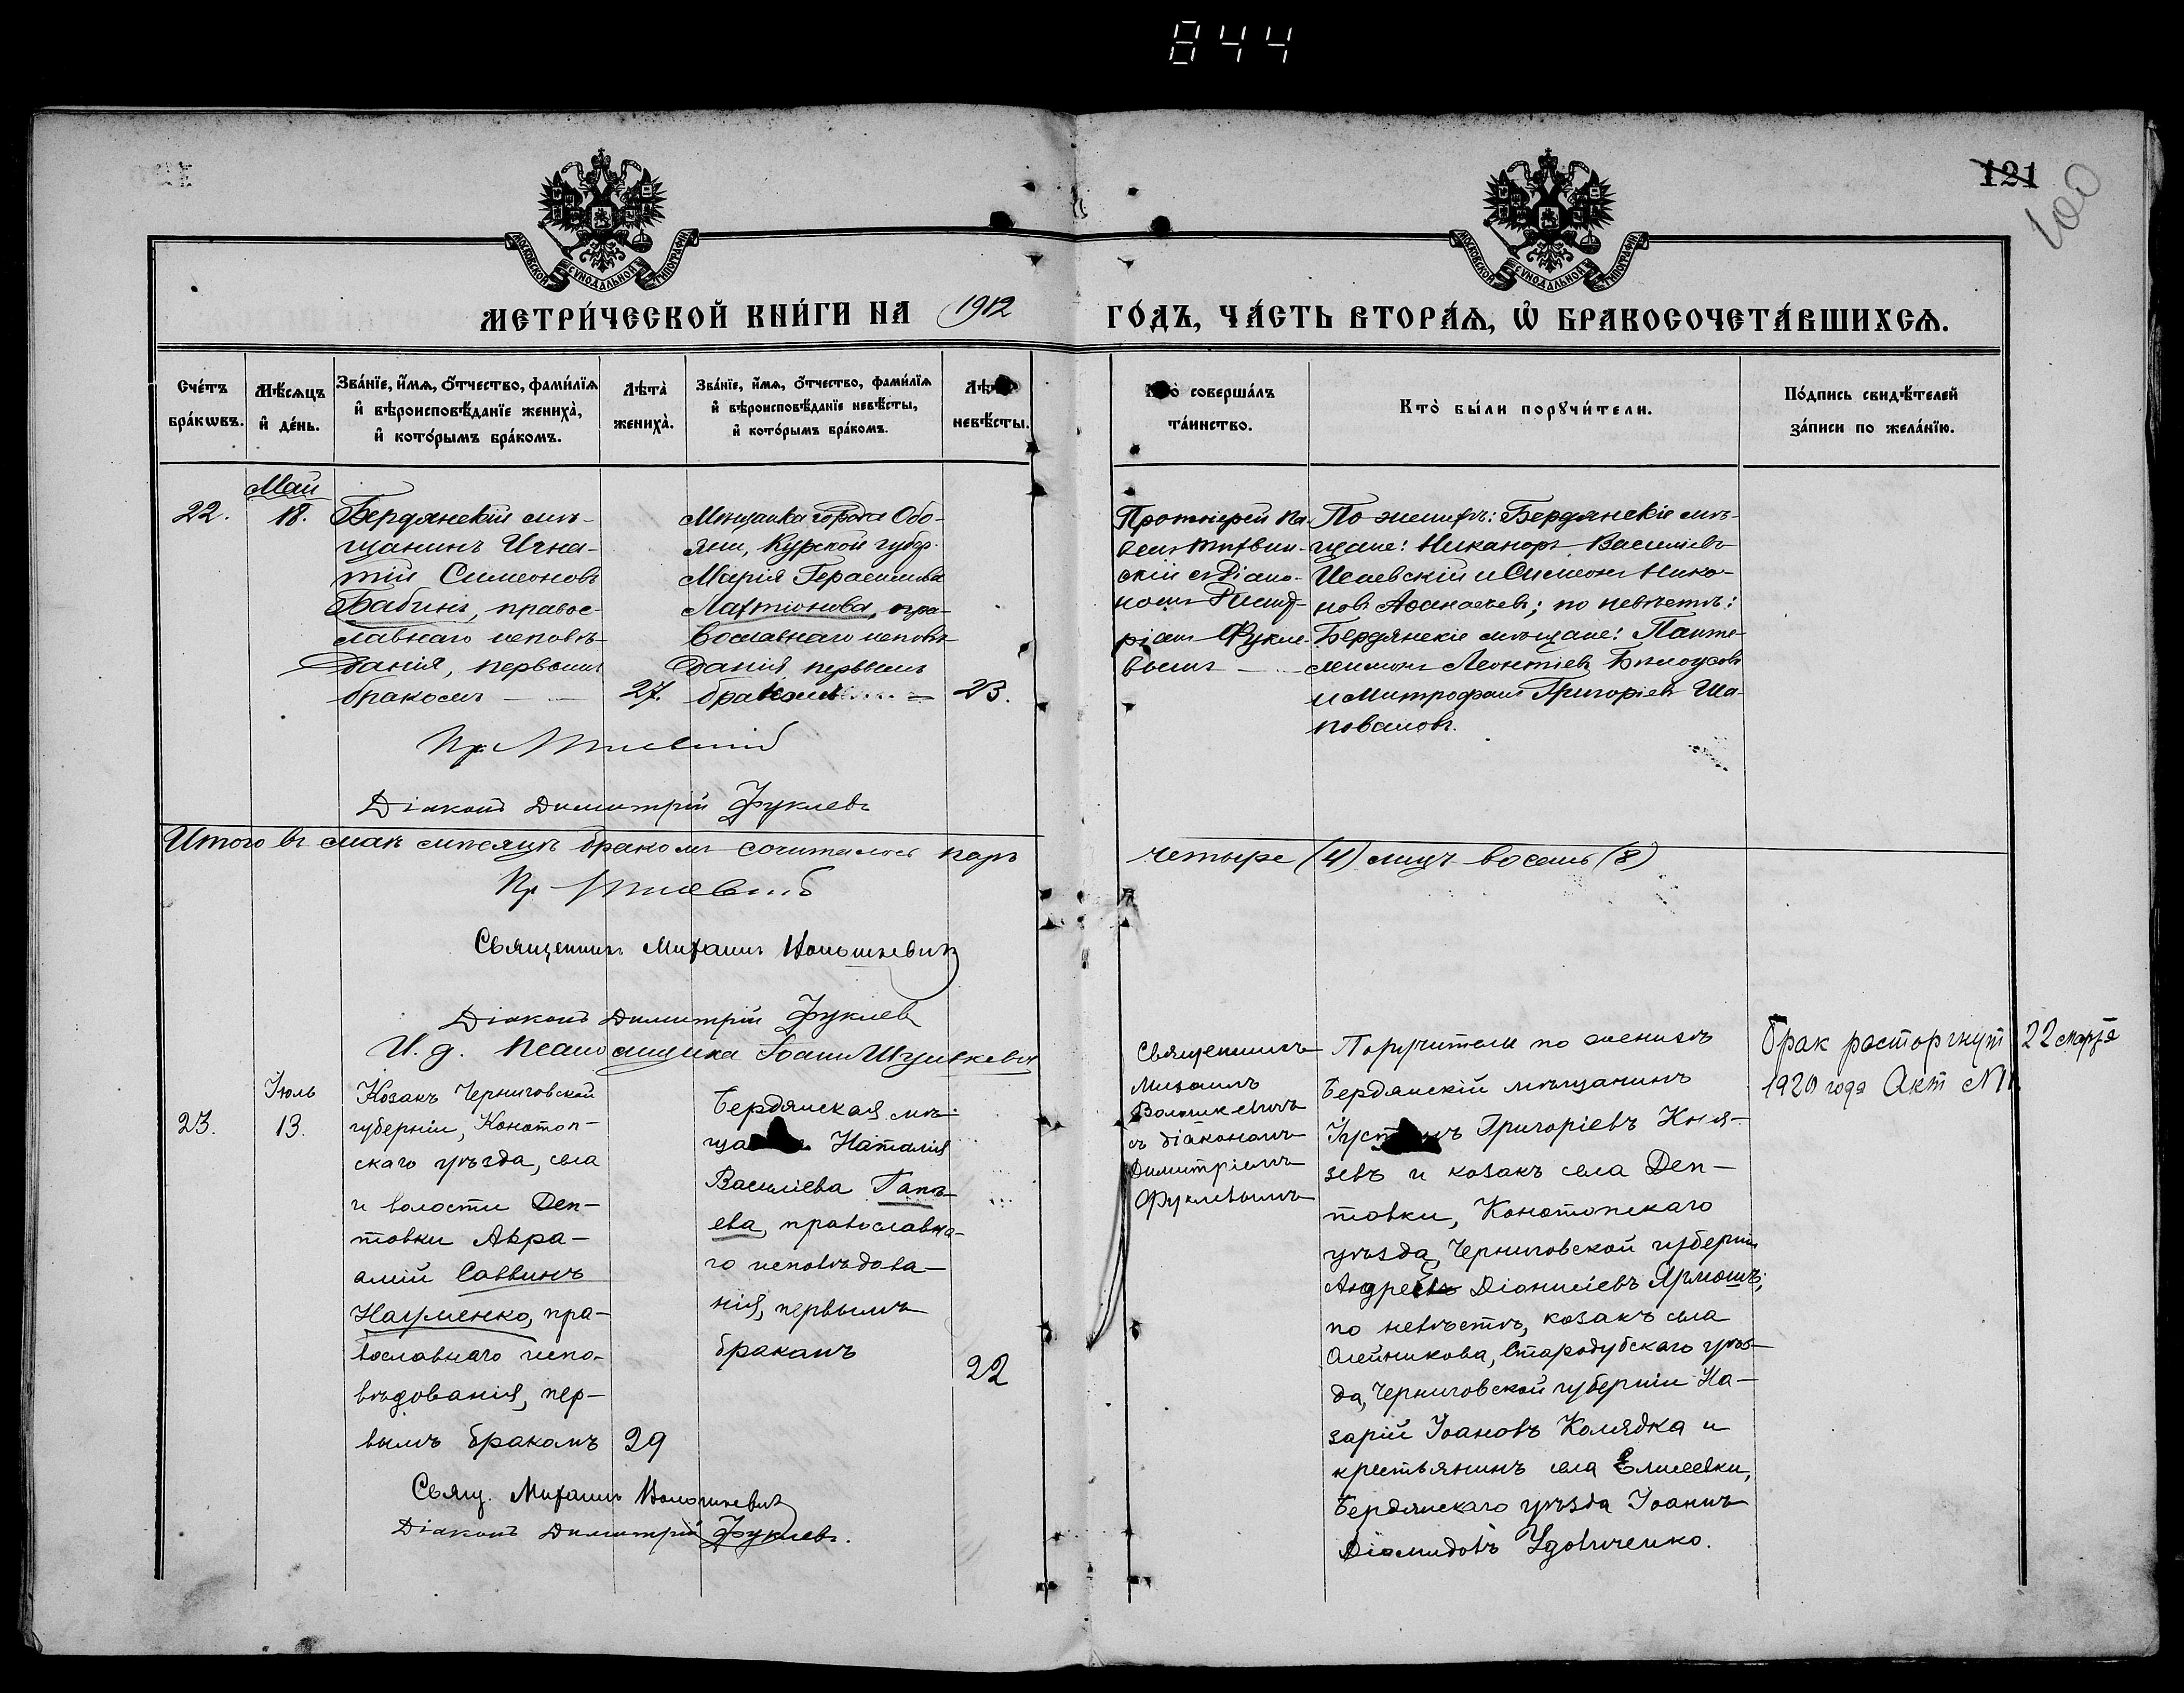 844
121
100
МОСКОВСКОЙ СУНОДАЛЬНОЙ ТИПОГРАФІИ
МОСКОВСКОЙ СУНОДАЛЬНОЙ ТИПОГРАФІИ
МЕТРИ́ЧЕСКОЙ КНИ́ГИ НА 1912 ГО́ДЪ, ЧА́СТЬ ВТОРА́Ѧ, Ѡ҆ БРАКОСОЧЕТА́ВШИХСѦ.
Сче́тъ
бра́кѡвъ.
Мѣ́сѧцъ
и҆ де́нь.
Зва́нїе, и҆́мѧ, ѻ҆́тчество, фами́лїѧ
и҆ вѣроисповѣ́данїе жениха̀,
и҆ кото́рымъ бра́комъ.
Лѣта̀
жениха̀.
Зва́нїе, и҆́мѧ, ѻ҆́тчество, фами́лїѧ
и҆ вѣроисповѣ́данїе невѣ́сты,
и҆ кото́рымъ бра́комъ.
Лѣта̀
невѣ́сты.
Кто̀ соверша́лъ
та́инство.
Кто̀ бы́ли порꙋчи́тели.
По́дпись свидѣ́телей
за́писи по жела́нїю.
22.
Май
18.
Бердянскій мѣ-
щанинъ Игна-
тій Симеоновъ
Бабинъ, правос-
лавнаго исповѣ-
данія, первымъ
бракомъ
27.
Мѣщанка города Обо-
яни, Курской губер.
Марія Герасимова
Лахтіонова, пра-
вославнаго исповѣ-
данія, первымъ
бракомъ
23.
Протоіерей Па-
велъ Тихвин-
скій съ Діако-
номъ Димит-
ріемъ Фукле-
вымъ
По женихѣ: Бердянскіе мѣ-
щане: Никаноръ Васильевъ
Исаевскій и Симеонъ Нико-
новъ Аѳанасьевъ; по невѣстѣ:
Бердянскіе мѣщане: Панте-
леимонъ Леонтіевъ Бѣлоусовъ
и Митрофанъ Григоріевъ Ша-
поваловъ.
Діаконъ Димитрій Фуклевъ
Итого въ маѣ мѣсяцѣ бракомъ сочиталось паръ четыре (4) лицъ восемь (8)
Священникъ Михаилъ
Діаконъ Димитрій Фуклевъ
И. д. псаломщика Іоаннъ
23.
Іюль
13.
Козакъ Черниговской
губерніи, Конотоп-
скаго уѣзда, села
и волости Деп-
товки Авра-
амій Саввинъ
Науменко, пра-
вославнаго испо-
вѣдованія, пер-
вымъ бракомъ
29
Бердянская мѣ-
Наталія
Василіева Гапѣ-
ева, православна-
го исповѣдова-
нія, первымъ
бракомъ
22
Священникъ
Михаилъ
съ діакономъ
Димитріемъ
Фуклевымъ
Поручители по женихѣ
Бердянскій мѣщанинъ
Григоріевъ Кня-
зевъ и козакъ села Деп-
товки, Конотопскаго
уѣзда, Черниговской губерніи
Андрей Даніилевъ Ярмошъ;
по невѣстѣ, козакъ села
Олейникова, Стародубскаго уѣз-
да, Черниговской губерніи На-
зарій Іоановъ Колядка и
крестьянинъ села Елисеевки,
Бердянскаго уѣзда Іоаннъ
Діомидовъ Удовиченко.
брак расторгнут 22 марта
1920 года Акт №
Свящ. Михаилъ
Діаконъ Димитрій Фуклевъ.